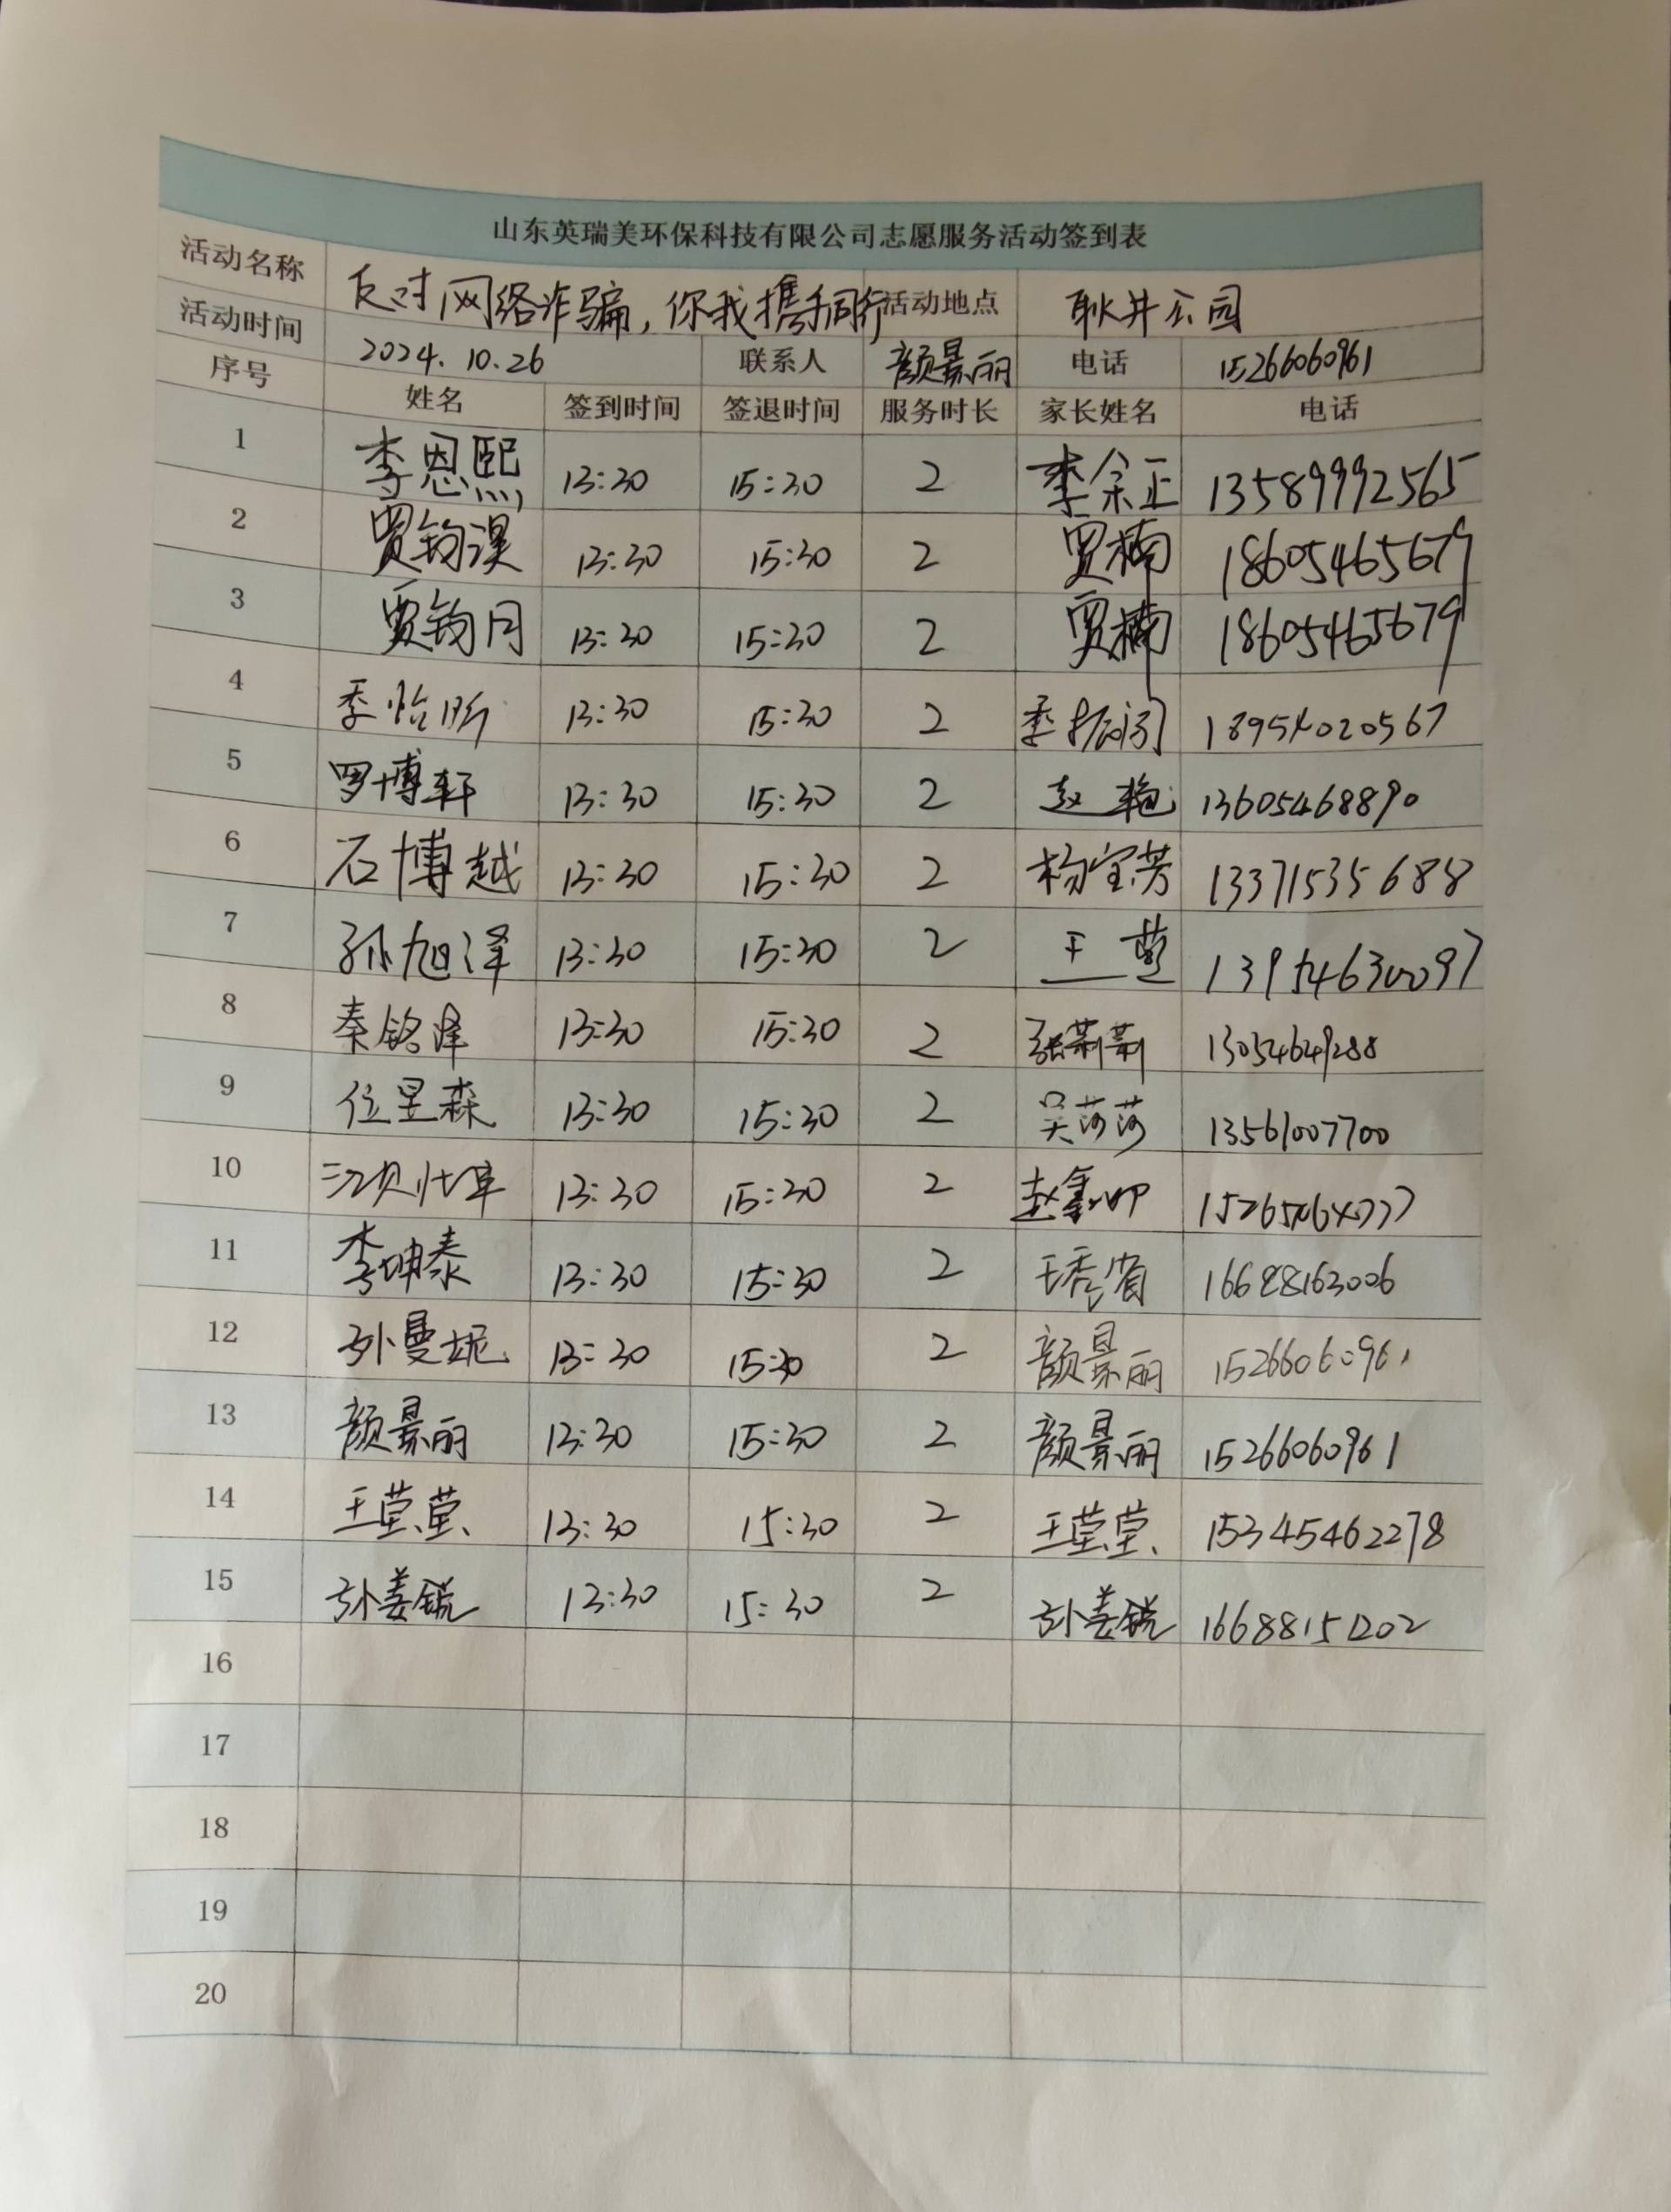 山东英瑞美环保科技有限公司志愿服务活动签到表
活动名称 反对网络诈骗，你我携手同行 活动地点 耿井公园
活动时间 2024.10.26 联系人 颜景丽 电话 15266060961
序号 姓名 签到时间 签退时间 服务时长 家长姓名 电话
1 李恩熙 13:30 15:30 2 李余正 13589992565
2 贾钧淏 13:30 15:30 2 贾楠 18605465679
3 贾钧月 13:30 15:30 2 贾楠 18605465679
4 季怡昕 13:30 15:30 2 季振闯 18954020567
5 罗博轩 13:30 15:30 2 赵艳 13605468890
6 石博越 13:30 15:30 2 杨宝芳 13371535688
7 孙旭泽 13:30 15:30 2 王 13954630097
8 秦铭泽 13:30 15:30 2 张莉莉 13054649288
9 位昱森 13:30 15:30 2 吴莎莎 13561007700
10 13:30 15:30 2 赵鑫
11 李坤泰 13:30 15:30 2 王秀省 16688163006
12 孙曼妮 13:30 15:30 2 颜景丽 15266060961
13 颜景丽 13:30 15:30 2 颜景丽 15266060961
14 王莹莹 13:30 15:30 2 王莹莹 15345462278
15 孙姜锐 13:30 15:30 2 孙姜锐 16688151202
16
17
18
19
20